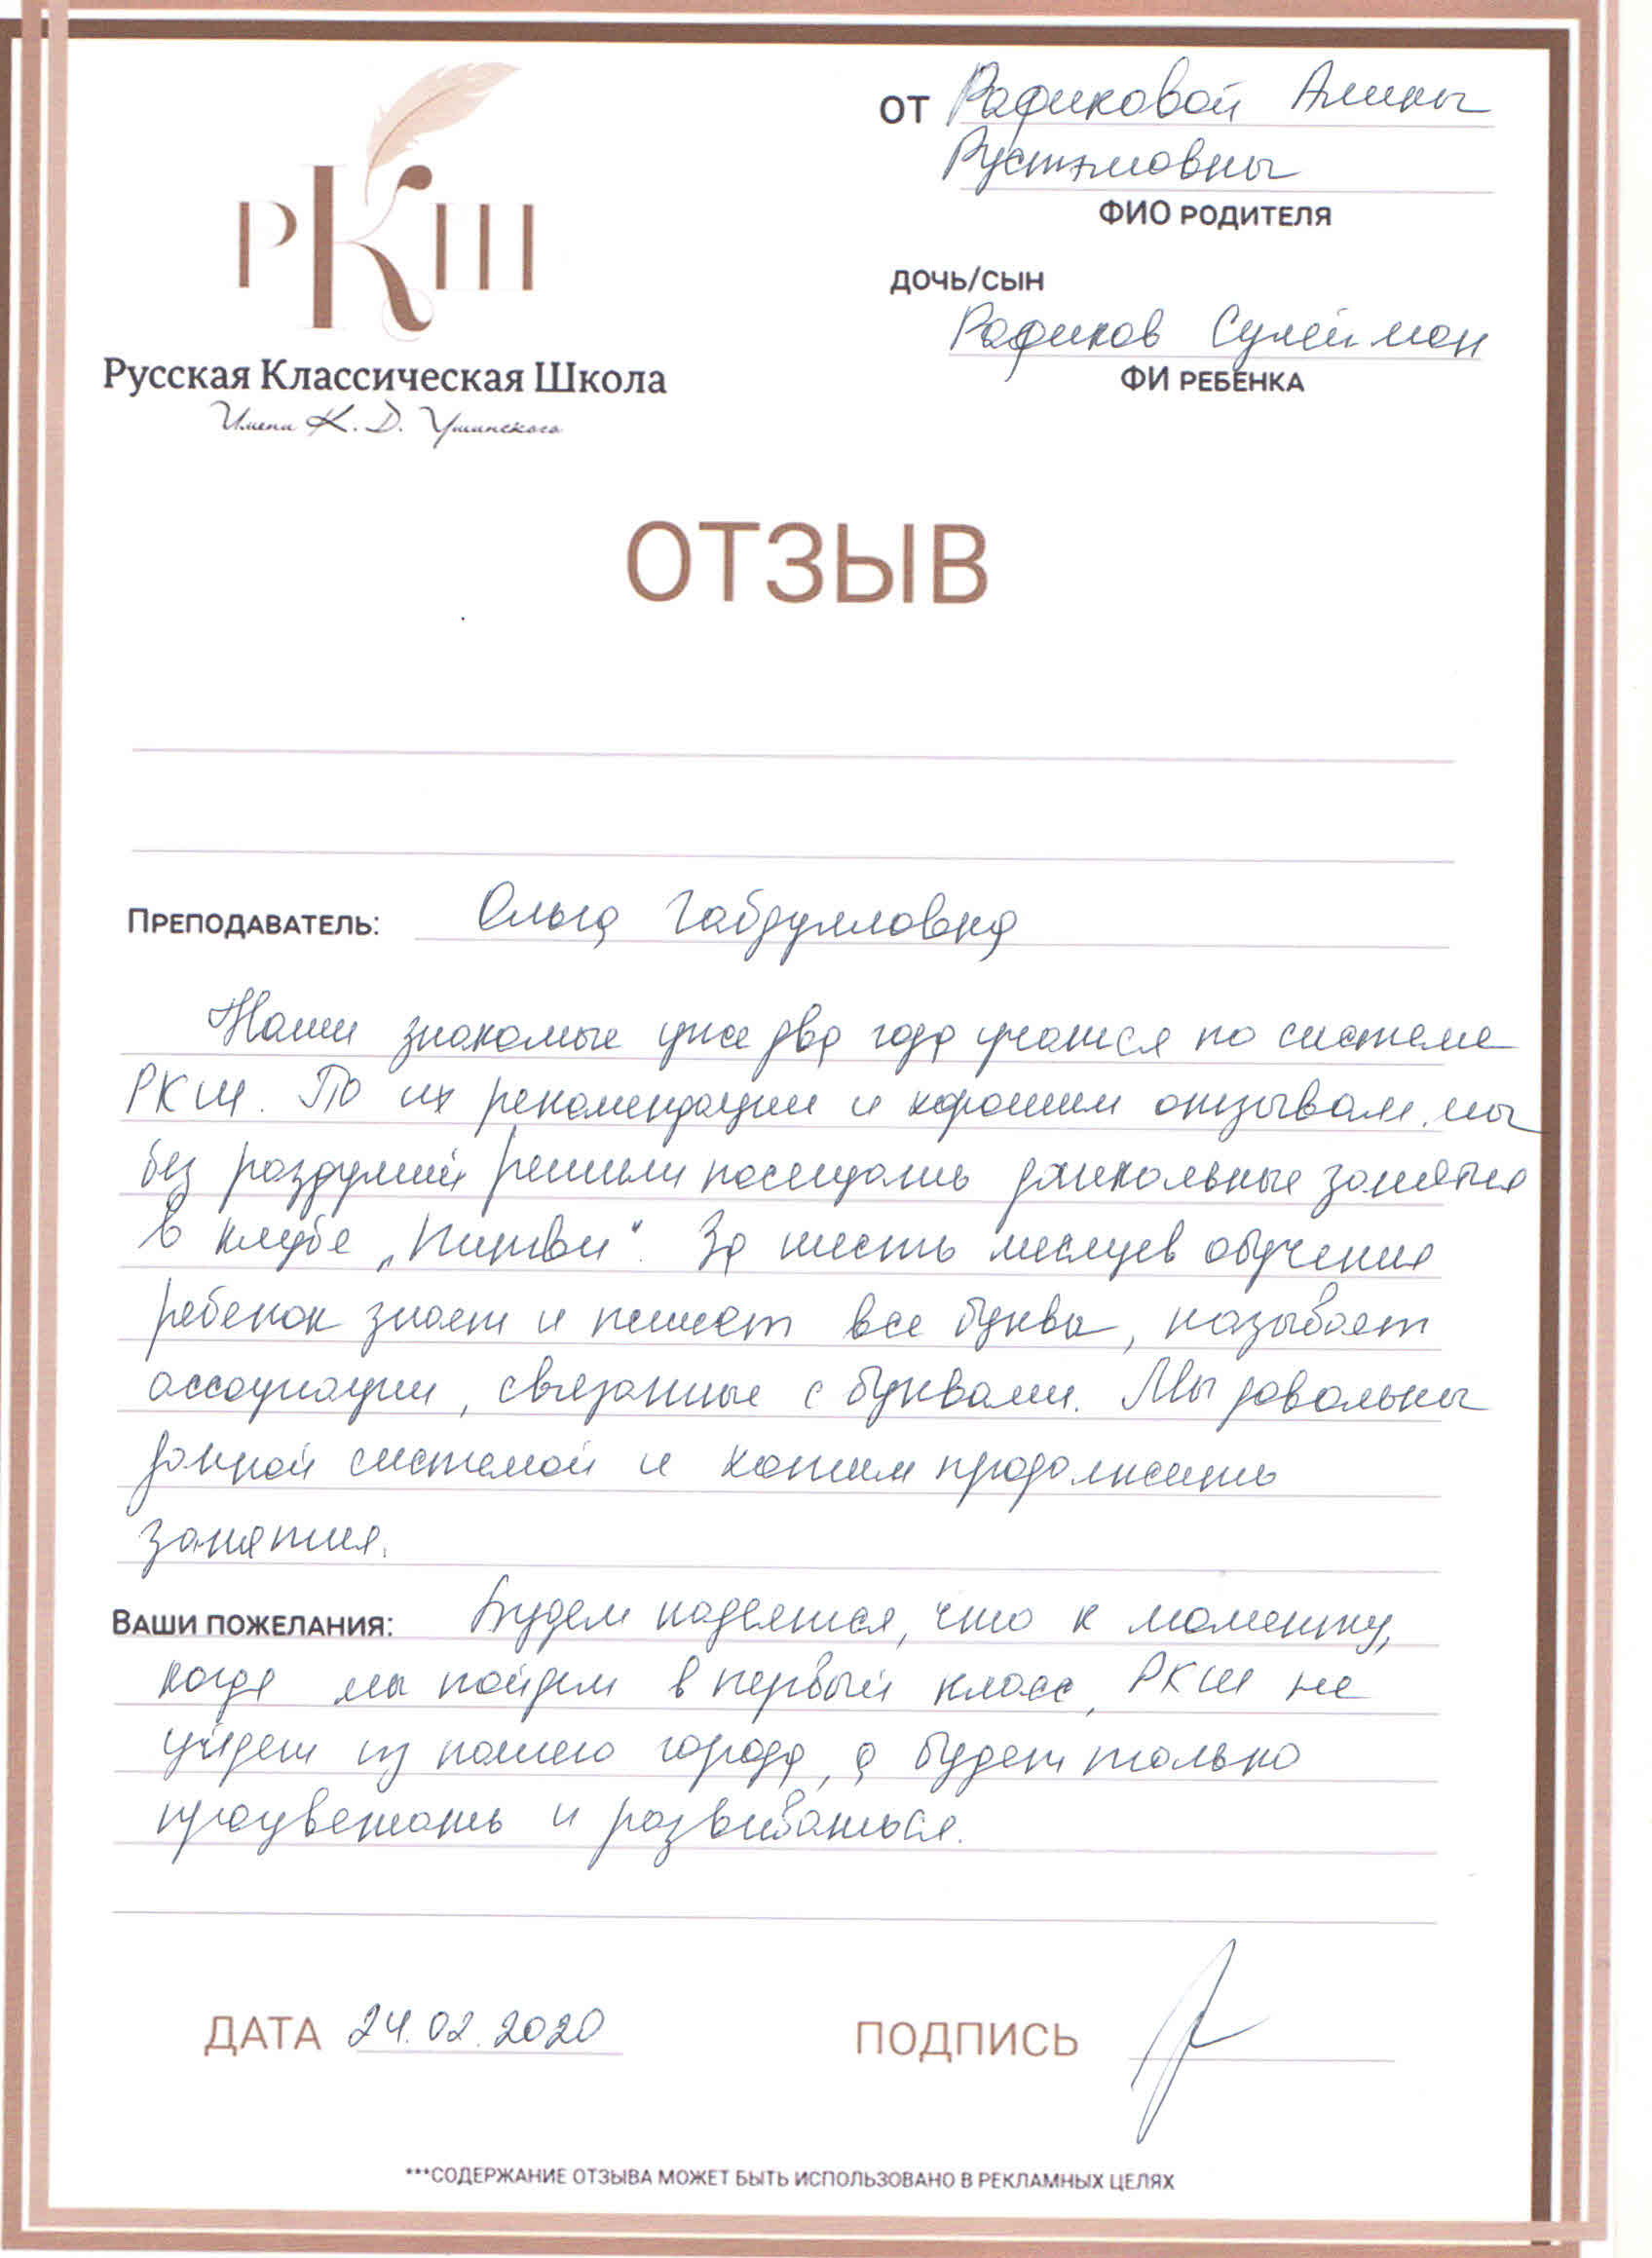 от Рафиковой Алины
Рустэмовны
ФИО РОДИТЕЛЯ
дочь/сын
Рафиков Сулейман
ФИ РЕБЕНКА
РКШ
Русская Классическая Школа
Имени К. Д. Ушинского
ОТЗЫВ
Преподаватель: Ольга Габдулловна
Наши знакомые уже два года учатся по системе
РКШ. По их рекомендации и хорошим отзывам, мы
без раздумий решили посещать дошкольные занятия
в клубе „Питви“. За шесть месяцев обучения
ребенок знает и пишет все буквы, называет
ассоциации, связанные с буквами. Мы довольны
данной системой и хотим продолжить
занятия.
Ваши пожелания: Будем надеятся, что к моменту,
когда мы пойдем в первый класс, РКШ не
уйдет из нашего города, а будет только
процветать и развиваться.
ДАТА 24.02.2020 ПОДПИСЬ
***СОДЕРЖАНИЕ ОТЗЫВА МОЖЕТ БЫТЬ ИСПОЛЬЗОВАНО В РЕКЛАМНЫХ ЦЕЛЯХ